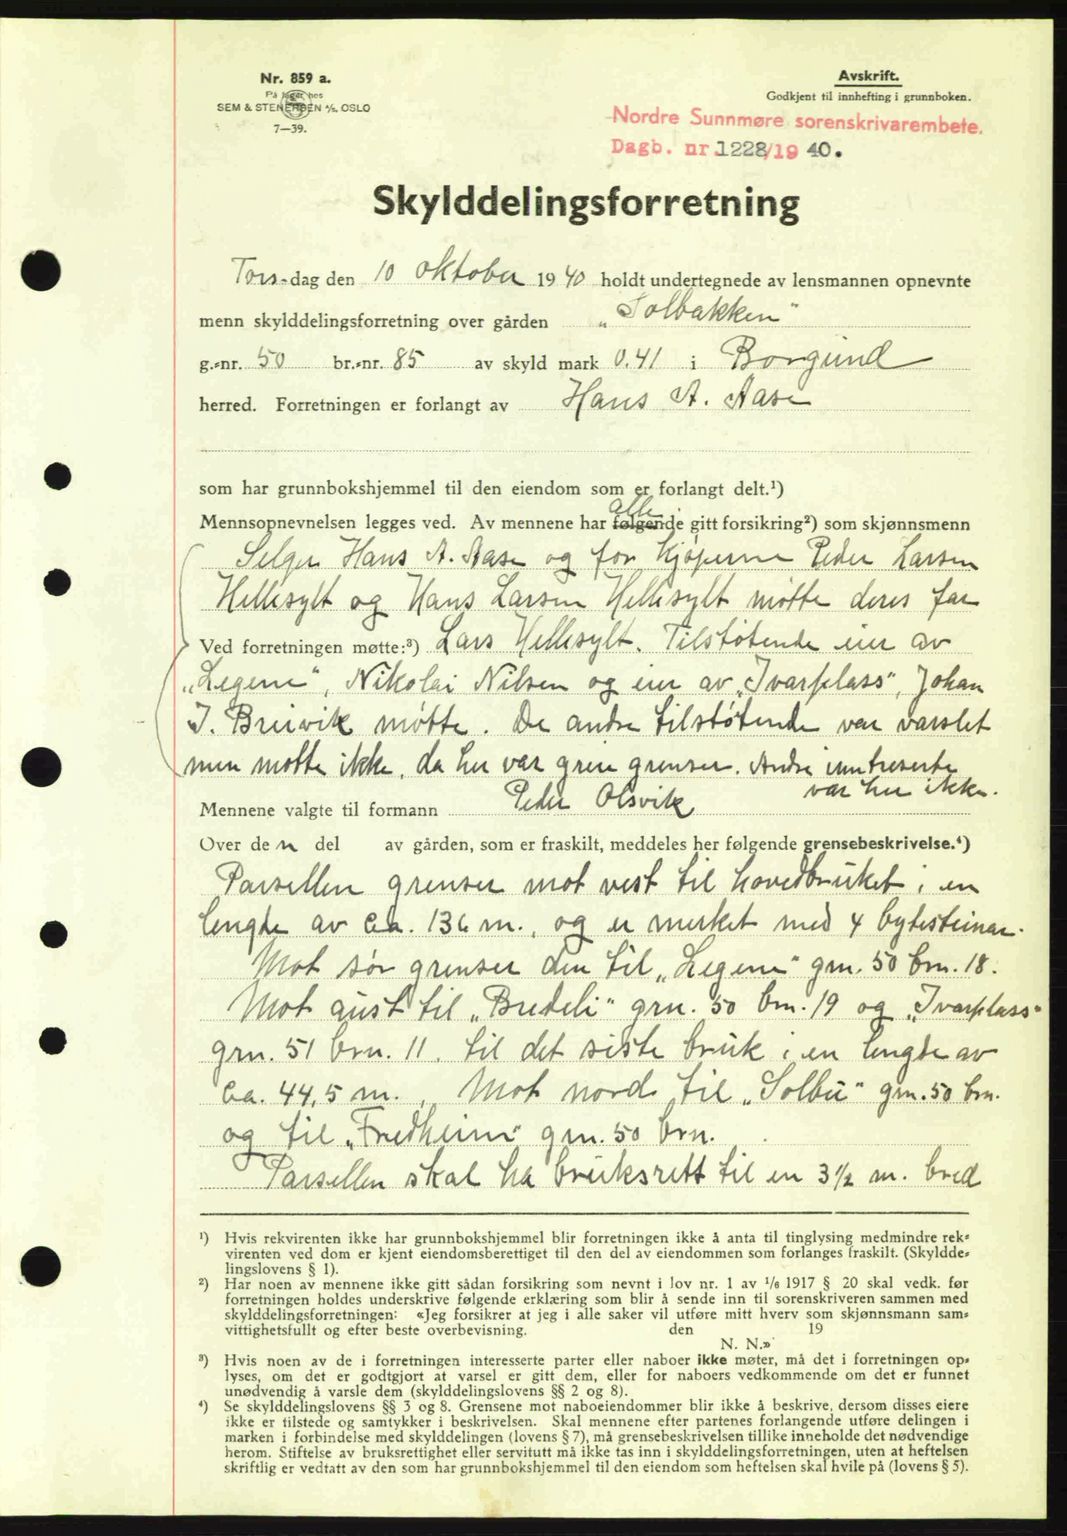 Nr. 859 a.
På lager hos
SEM & STENERSEN A/S, OSLO
7—39.
Avskrift.
Godkjent til innhefting i grunnboken.
Nordre Sunnmøre sorenskrivarembete.
Dagb. nr 1228/19 40.
Skylddelingsforretning
Tors-dag den 10 oktober 1940 holdt undertegnede av lensmannen opnevnte
menn skylddelingsforretning over gården „Solbakken“
g.-nr. 50 br.-nr. 85 av skyld mark 0.41 i Borgund
herred. Forretningen er forlangt av Hans A. Aase
som har grunnbokshjemmel til den eiendom som er forlangt delt.¹)
alle
Mennsopnevnelsen legges ved. Av mennene har følgende gitt forsikring²) som skjønnsmenn
Selger Hans A. Aase og for kjøperne Peder Larsen
Hellesylt og Hans Larsen Hellesylt møtte deres far
Ved forretningen møtte:³) Lars Hellesylt. Tilstøtende eier av
„Legene“, Nikolai Nilsen og eier av „Ivarplass“, Johan
J. Breivik møtte. De andre tilstøtende var varslet
men møtte ikke, da her var greie grenser. Andre inntreserte
var her ikke.
Mennene valgte til formann Peder Olsvik
Over den del av gården, som er fraskilt, meddeles her følgende grensebeskrivelse.⁴)
Parsellen grenser mot vest til hovedbruket i en
lengde av ca. 136 m., og er merket med 4 bytesteinar.
Mot sør grenser den til „Legene“ grn. 50 brn. 18.
Mot aust til „Bredeli“ grn. 50 brn. 19 og „Ivarplass“
grn. 51 brn. 11. til det siste bruk i en lengde av
ca. 44,5 m., Mot nord til „Solbu“ grn. 50 brn.
og til „Fredheim“ grn. 50 brn.
Parsellen skal ha bruksrett til en 3½ m. bred
¹) Hvis rekvirenten ikke har grunnbokshjemmel blir forretningen ikke å anta til tinglysing medmindre rek-
virenten ved dom er kjent eiendomsberettiget til den del av eiendommen som forlanges fraskilt. (Skyldde-
lingslovens § 1).
²) Har noen av mennene ikke gitt sådan forsikring som nevnt i lov nr. 1 av 1/6 1917 § 20 skal vedk. før
forretningen holdes underskrive følgende erklæring som blir å sende inn til sorenskriveren sammen med
skylddelingsforretningen: «Jeg forsikrer at jeg i alle saker vil utføre mitt hverv som skjønnsmann sam-
vittighetsfullt og efter beste overbevisning. den 19
N. N.»
³) Hvis noen av de i forretningen interesserte parter eller naboer ikke møter, må det i forretningen op-
lyses, om det er godtgjort at varsel er gitt dem, eller for naboers vedkommende om det er funnet
unødvendig å varsle dem (skylddelingslovens §§ 2 og 8).
⁴) Se skylddelingslovens §§ 3 og 8. Grensene mot naboeiendommer blir ikke å beskrive, dersom disses eiere
ikke er tilstede og samtykker i beskrivelsen. Skal mennene efter partenes forlangende utføre delingen i
marken i forbindelse med skylddelingen (lovens § 7), må grensebeskrivelsen tillike inneholde det nødvendige
herom. Stiftelse av bruksrettighet eller servitutt må ikke tas inn i skylddelingsforretningen, uten at heftelsen
skriftlig er vedtatt av den som har grunnbokshjemmel til den eiendom som heftelsen skal hvile på (lovens § 5).